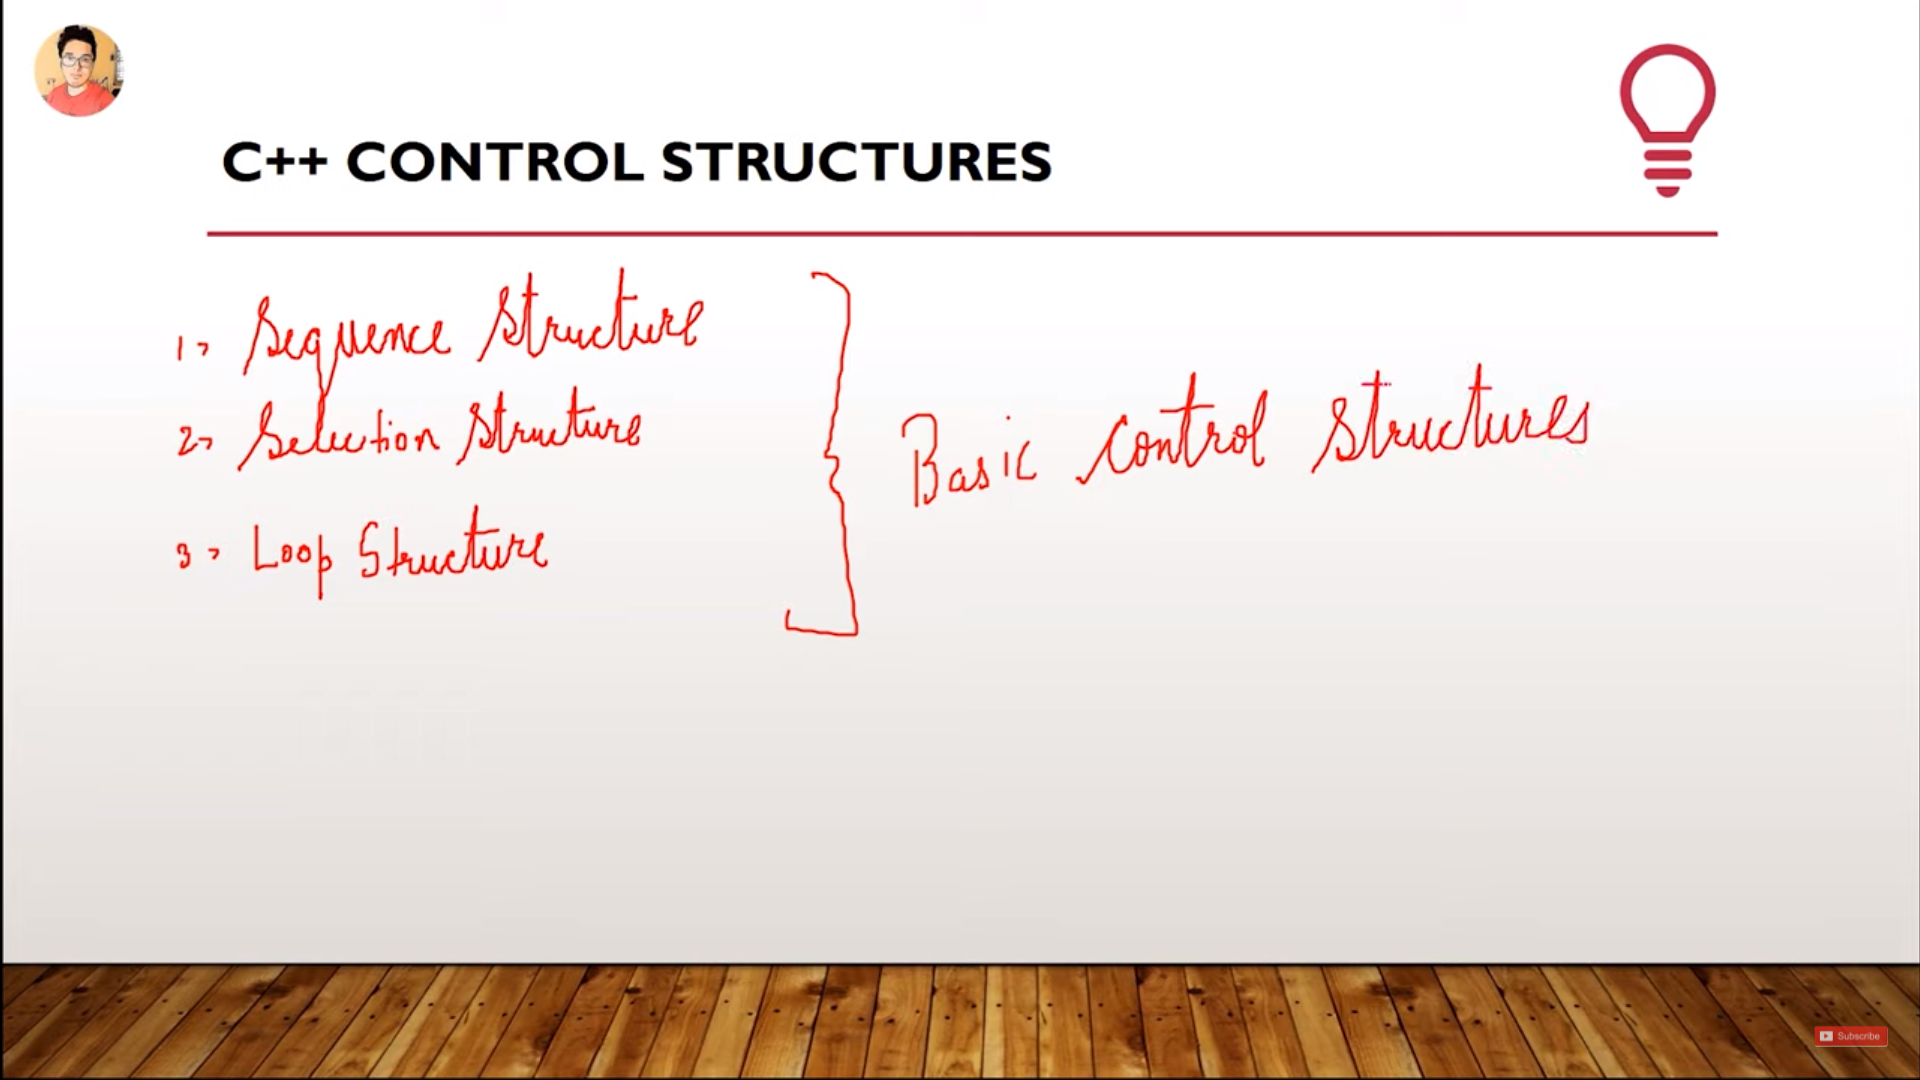 C++ CONTROL STRUCTURES
1> Sequence Structure
2> Selection Structure
3> Loop Structure
Basic Control Structures
Subscribe